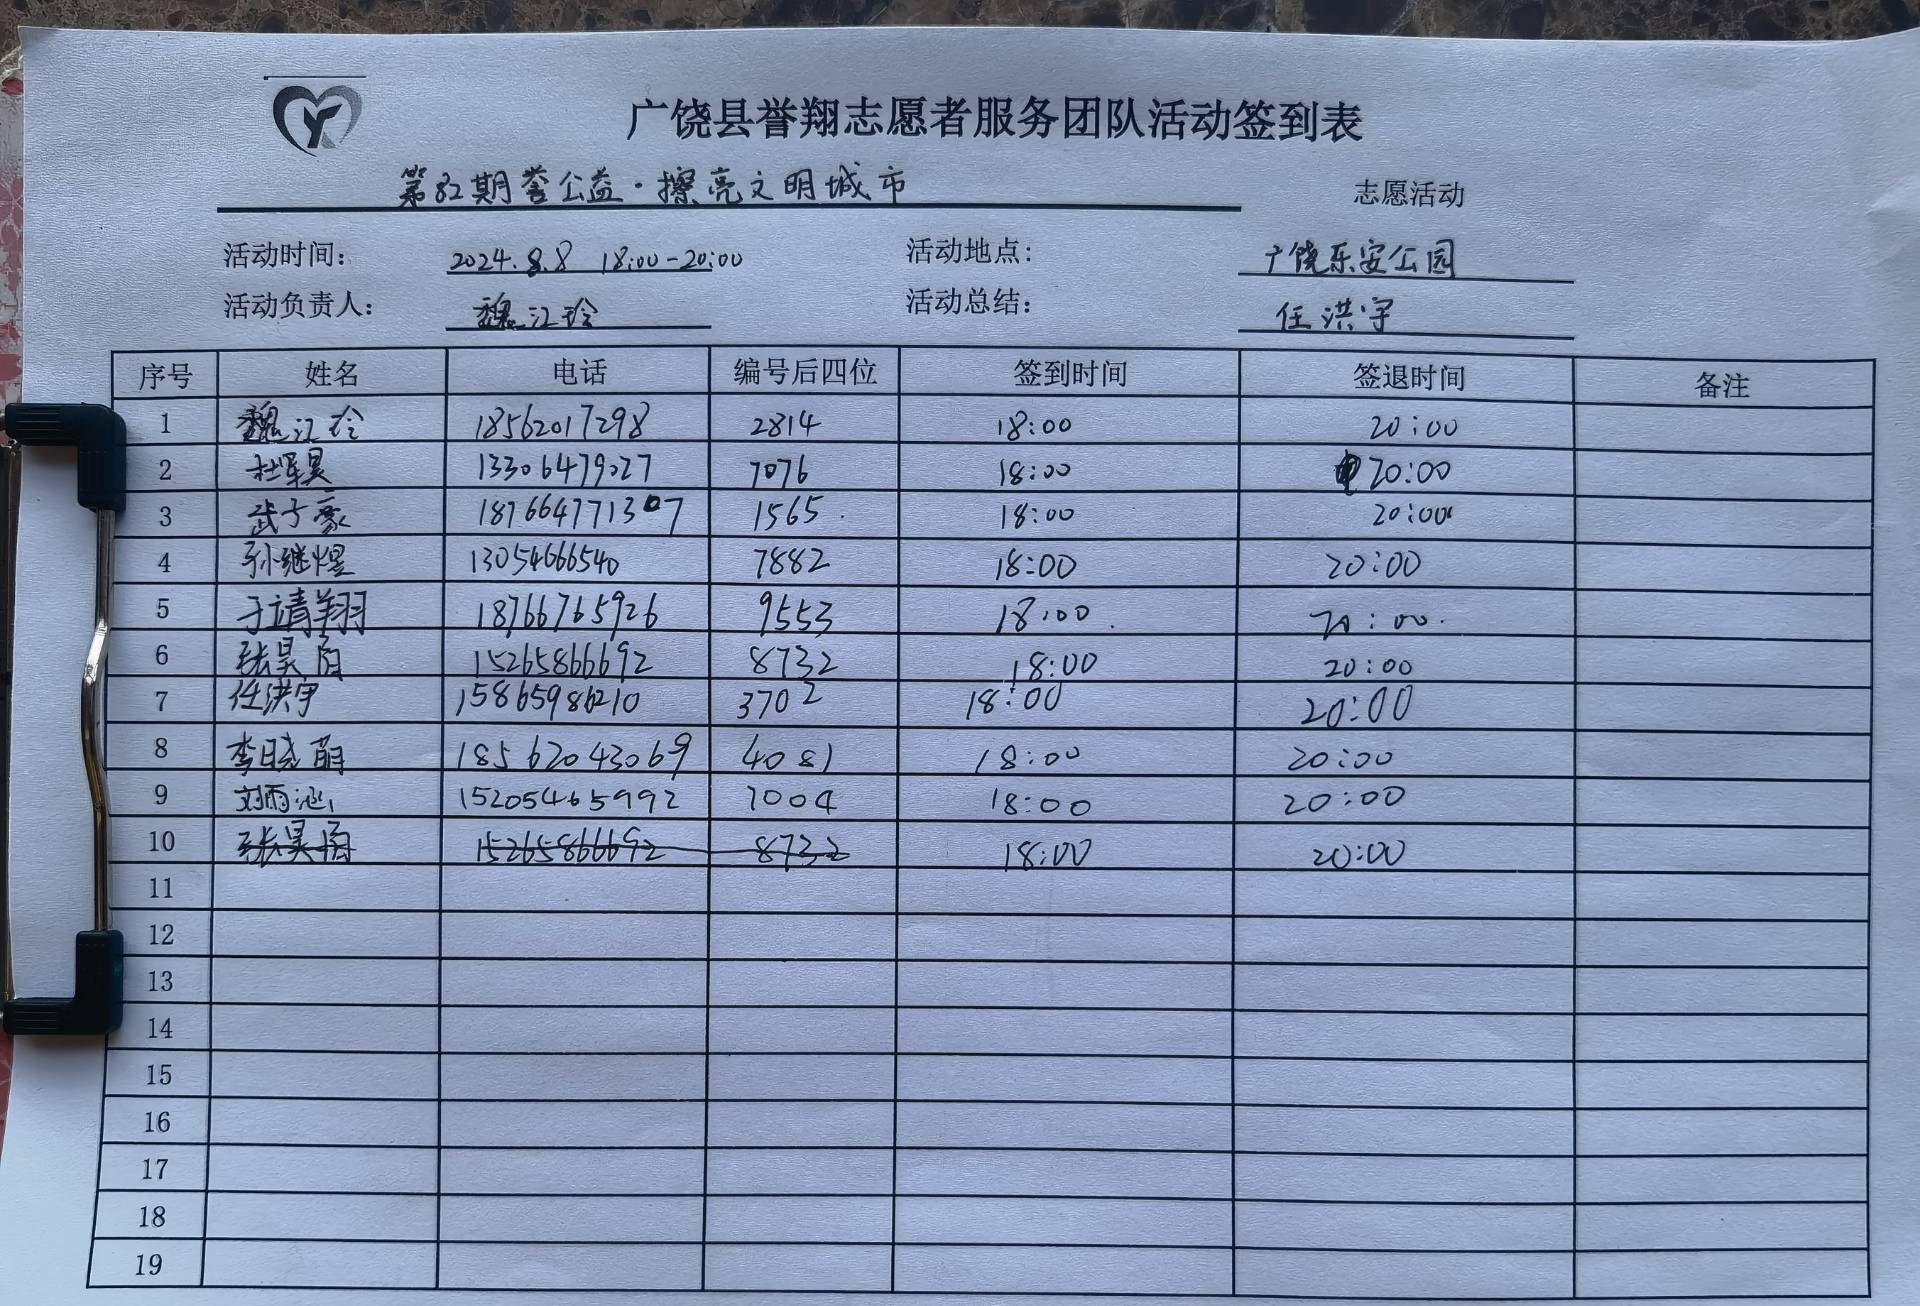 广饶县誉翔志愿者服务团队活动签到表
第82期誉公益·擦亮文明城市 志愿活动
活动时间: 2024.8.8 18:00-20:00 活动地点: 广饶乐安公园
活动负责人: 魏江玲 活动总结: 任洪宇
序号 姓名 电话 编号后四位 签到时间 签退时间 备注
1 魏江玲 18562017298 2814 18:00 20:00
2 杜军昊 13306479027 7076 18:00 20:00
3 武子豪 187664771307 1565 18:00 20:00
4 孙继煜 13054666540 7882 18:00 20:00
5 于靖翔 18766765926 9553 18:00 20:00
6 张昊阳 15265866692 8732 18:00 20:00
7 任洪宇 15865986210 3702 18:00 20:00
8 李晓萌 18562043069 4081 18:00 20:00
9 刘雨涵 15205465992 7004 18:00 20:00
10 张昊 15265866692 8732 18:00 20:00
11
12
13
14
15
16
17
18
19